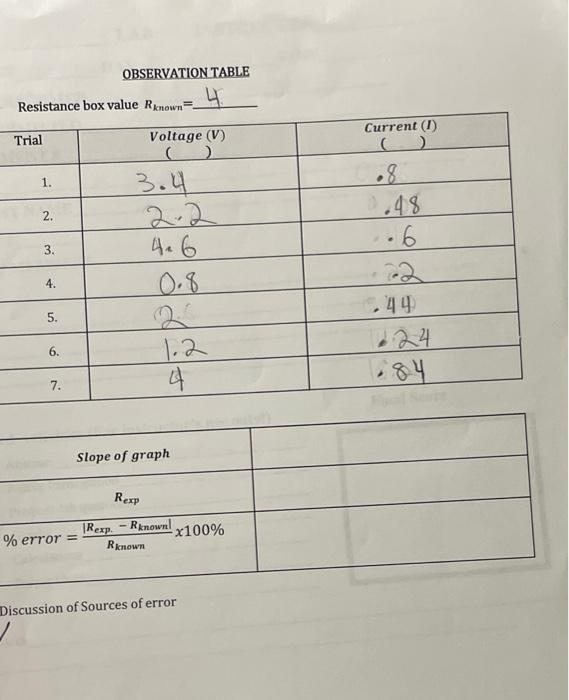 OBSERVATION TABLE
Resistance box value Rknown= 4
Trial Voltage (V) Current (I)
( ) ( )
1. 3.4 .8
2. 2.2 .48
3. 4.6 .6
4. 0.8 .22
5. 2 .44
6. 1.2 .24
7. 4 .84
Slope of graph
Rexp
% error = |Rexp. − Rknown| / Rknown x100%
Discussion of Sources of error